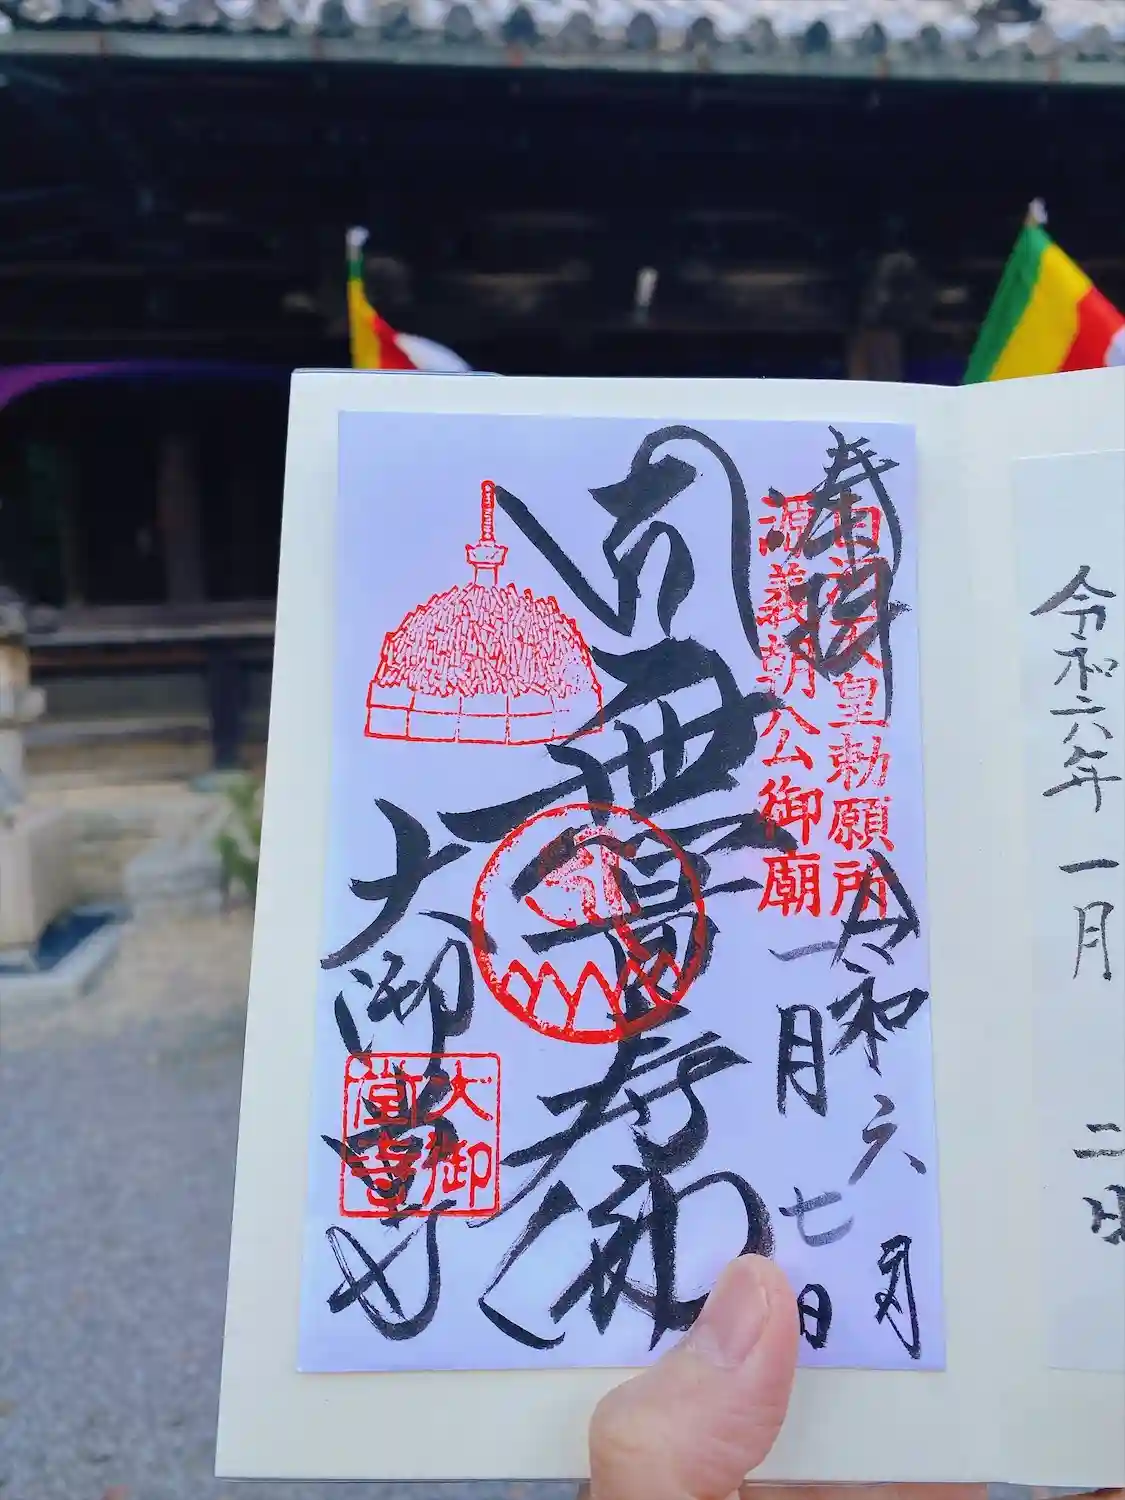 令和六年 一月
二日
奉拝
白河天皇勅願所
源義朝公御廟
令和六
一月七日
無量寿佛
大御堂寺
大御
堂寺